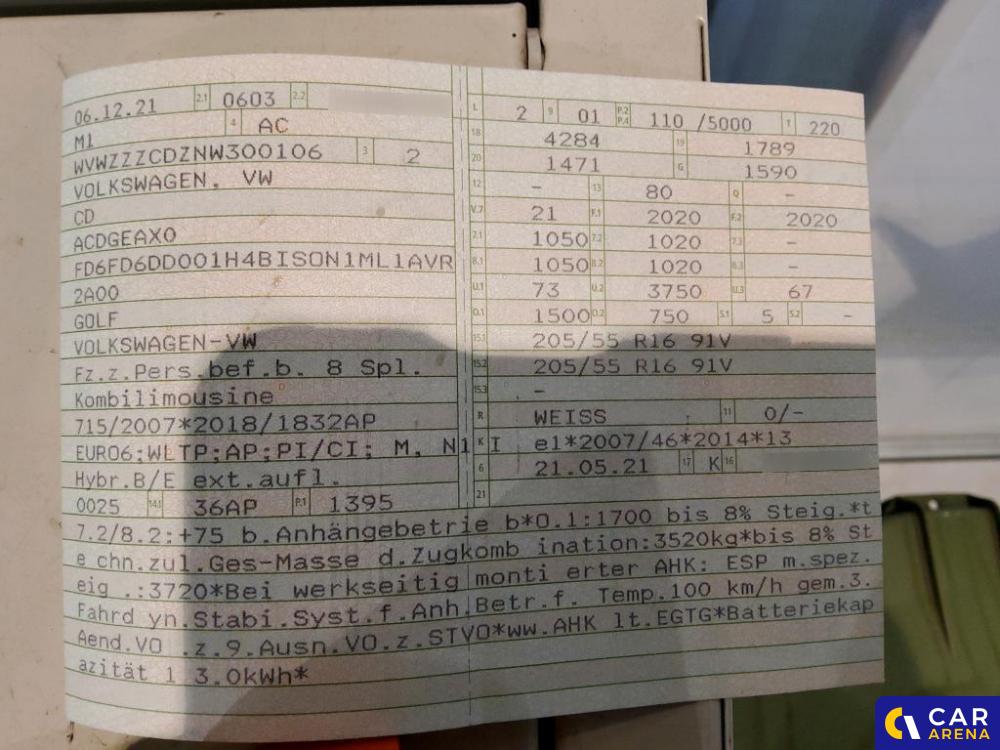 06.12.21 2.1 0603 2.2
M1 4 AC
WVWZZZCDZNW300106 3 2
VOLKSWAGEN, VW
CD
ACDGEAX0
FD6FD6DD001H4BISON1ML1AVR
2A00
GOLF
VOLKSWAGEN-VW
Fz.z.Pers.bef.b. 8 Spl.
Kombilimousine
715/2007*2018/1832AP
EURO6;WLTP;AP;PI/CI; M, N1 I
Hybr.B/E ext.aufl.
0025 14.1 36AP P.1 1395
L 2 9 01 P.2 P.4 110 /5000 T 220
18 4284 19 1789
20 1471 G 1590
12 - 13 80 Q -
V.7 21 F.1 2020 F.2 2020
7.1 1050 7.2 1020 7.3 -
8.1 1050 8.2 1020 8.3 -
U.1 73 U.2 3750 U.3 67
O.1 1500 O.2 750 S.1 5 S.2 -
15.1 205/55 R16 91V
15.2 205/55 R16 91V
15.3 -
R WEISS 11 0/-
K e1*2007/46*2014*13
6 21.05.21 17 K 16
21
7.2/8.2:+75 b.Anhängebetrie b*O.1:1700 bis 8% Steig.*t
e chn.zul.Ges-Masse d.Zugkomb ination:3520kg*bis 8% St
eig .:3720*Bei werkseitig monti erter AHK: ESP m.spez.
Fahrd yn.Stabi.Syst.f.Anh.Betr.f. Temp.100 km/h gem.3.
Aend.VO .z.9.Ausn.VO.z.STVO*ww.AHK lt.EGTG*Batteriekap
azität 1 3.0kWh*
CAR
ARENA